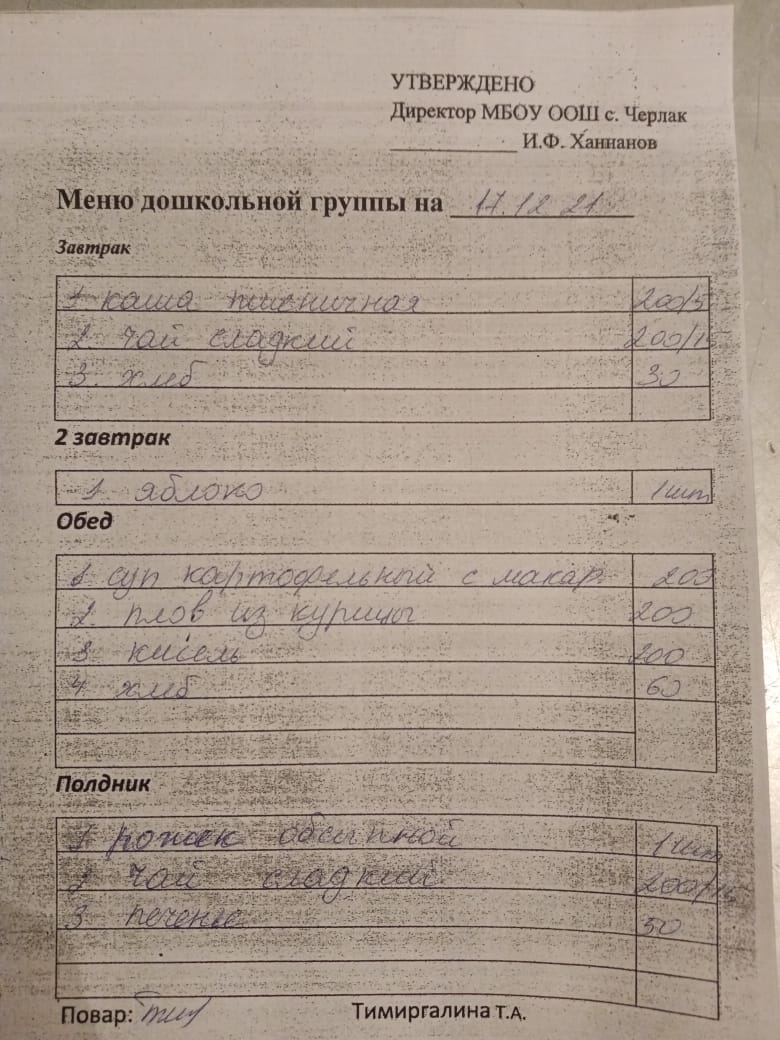 УТВЕРЖДЕНО
Директор МБОУ ООШ с. Черлак
____________ И.Ф. Ханнанов
Меню дошкольной группы на 17.12 21
Завтрак
1 каша пшеничная 200/5
2. чай сладкий 200/15
3. хлеб 30
2 завтрак
1. яблоко 1шт
Обед
1 суп картофельный с макар 200
2. плов из курицы 200
3 кисель 200
4. хлеб 60
Полдник
1 рожек обсыпной 1шт
2 чай сладкий 200/15
3 печенье 50
Повар: Тимиргалина Т.А.